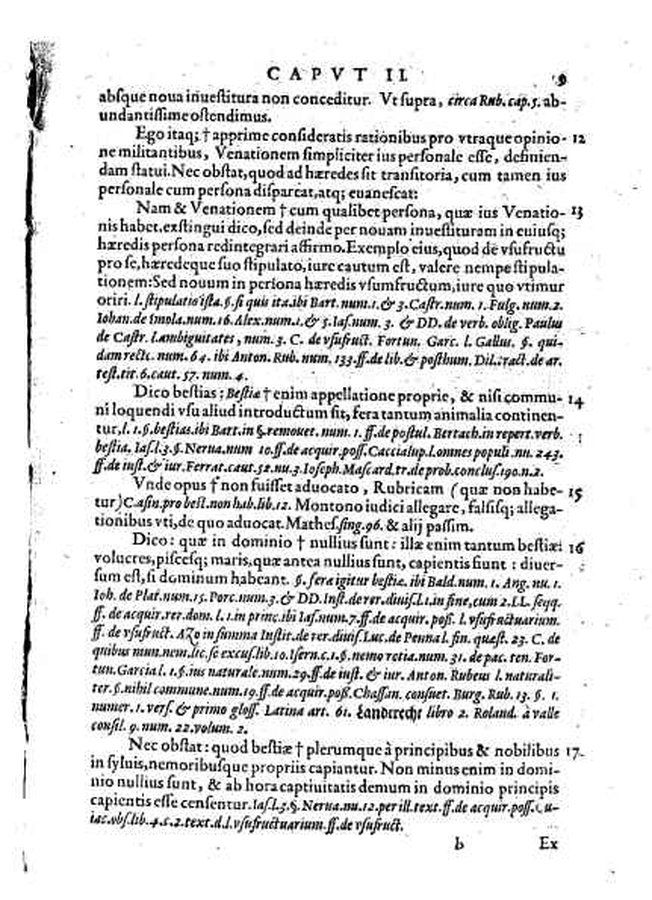 CAPVT II. 9
absque noua inuestitura non conceditur. Vt supra, circa Rub. cap. 5. ab-
undantissime ostendimus.
Ego itaq; † apprime consideratis rationibus pro vtraque opinio- 12
ne militantibus, Venationem simpliciter ius personale esse, definien-
dam statui. Nec obstat, quod ad hæredes sit transitoria, cum tamen ius
personale cum persona dispareat, atq; euanescat:
Nam & Venationem † cum qualibet persona, quæ ius Venatio- 13
nis habet, exstingui dico, sed deinde per nouam inuestituram in cuiusq;
hæredis persona redintegrari affirmo. Exemplo eius, quod de vsufructu
pro se, hæredeque suo stipulato, iure cautum est, valere nempe stipula-
tionem: Sed nouum in persona hæredis vsumfructum, iure quo vtimur
oriri. l. stipulatio ista. §. si quis ita. ibi Bart. num. 1. & 3. Castr. num. 1. Fulg. num. 2.
Iohan. de Imola. num. 16. Alex. num. 1. & 5. Ias. num. 3. & DD. de verb. oblig. Paulus
de Castr. l. ambiguitates, num. 3. C. de vsufruct. Fortun. Garc. l. Gallus. §. qui-
dam recte. num. 64. ibi Anton. Rub. num. 133. ff. de lib. & posthum. Dil. tract. de ar.
test. tit. 6. caut. 57. num. 4.
Dico bestias: Bestiæ † enim appellatione proprie, & nisi commu- 14
ni loquendi vsu aliud introductum sit, fera tantum animalia continen-
tur. l. 1. §. bestias. ibi Bart. in §. remouet. num. 1. ff. de postul. Bertach. in repert. verb.
bestia. Ias. l. 3. §. Nerua. num 10. ff. de acquir. poss. Caccialup. l. omnes populi. nu. 243.
ff. de inst. & iur. Ferrat. caut. 52. nu. 3. Ioseph. Mascard. tr. de prob. conclus. 190. n. 2.
Vnde opus † non fuisset aduocato, Rubricam (quæ non habe- 15
tur) C. a sin. pro best. non hab. lib. 12. Montono iudici allegare, falsisq; allega-
tionibus vti, de quo aduocat. Mathes. sing. 96. & alij passim.
Dico: quæ in dominio † nullius sunt: illæ enim tantum bestiæ 16
volucres, piscesq; maris, quæ antea nullius sunt, capientis fiunt: diuer-
sum est, si dominum habeant. §. feræ igitur bestiæ. ibi Bald. num. 1. Ang. nu. 1.
Ioh. de Plat. num. 15. Porc. num. 3. & DD. Inst. de rer. diuis. l. 1. in fine, cum 2. LL. seqq.
ff. de acquir. rer. dom. l. 1. in princ. ibi Ias. num. 7. ff. de acquir. poss. l. vsufructuarium.
ff. de vsufruct. Azo in summa Instit. de rer. diuis. Luc. de Penna l. fin. quæst. 23. C. de
quibus mun. nem. lic. se excus. lib. 10. Isern. c. 1. §. nemo retia. num. 31. de pac. ten. For-
tun. Garcia l. 1. §. ius naturale. num. 29. ff. de inst. & iur. Anton. Rubeus l. naturali-
ter. §. nihil commune. num. 19. ff. de acquir. poss. Chassan. consuet. Burg. Rub. 13. §. 1.
numer. 1. vers. & primo gloss. Latina art. 61. Landtrecht libro 2. Roland. à valle
consil. 9. num. 22. volum. 2.
Nec obstat: quod bestiæ † plerumque à principibus & nobilibus 17
in syluis, nemoribusque propriis capiantur. Non minus enim in domi-
nio nullius sunt, & ab hora captiuitatis demum in dominio principis
capientis esse censentur. Ias. l. 3. §. Nerua. nu. 12. per ill. text. ff. de acquir. poss. Cu-
iac. obs. lib. 4. c. 2. text. d. l. vsufructuarium. ff. de vsufruct.
b Ex